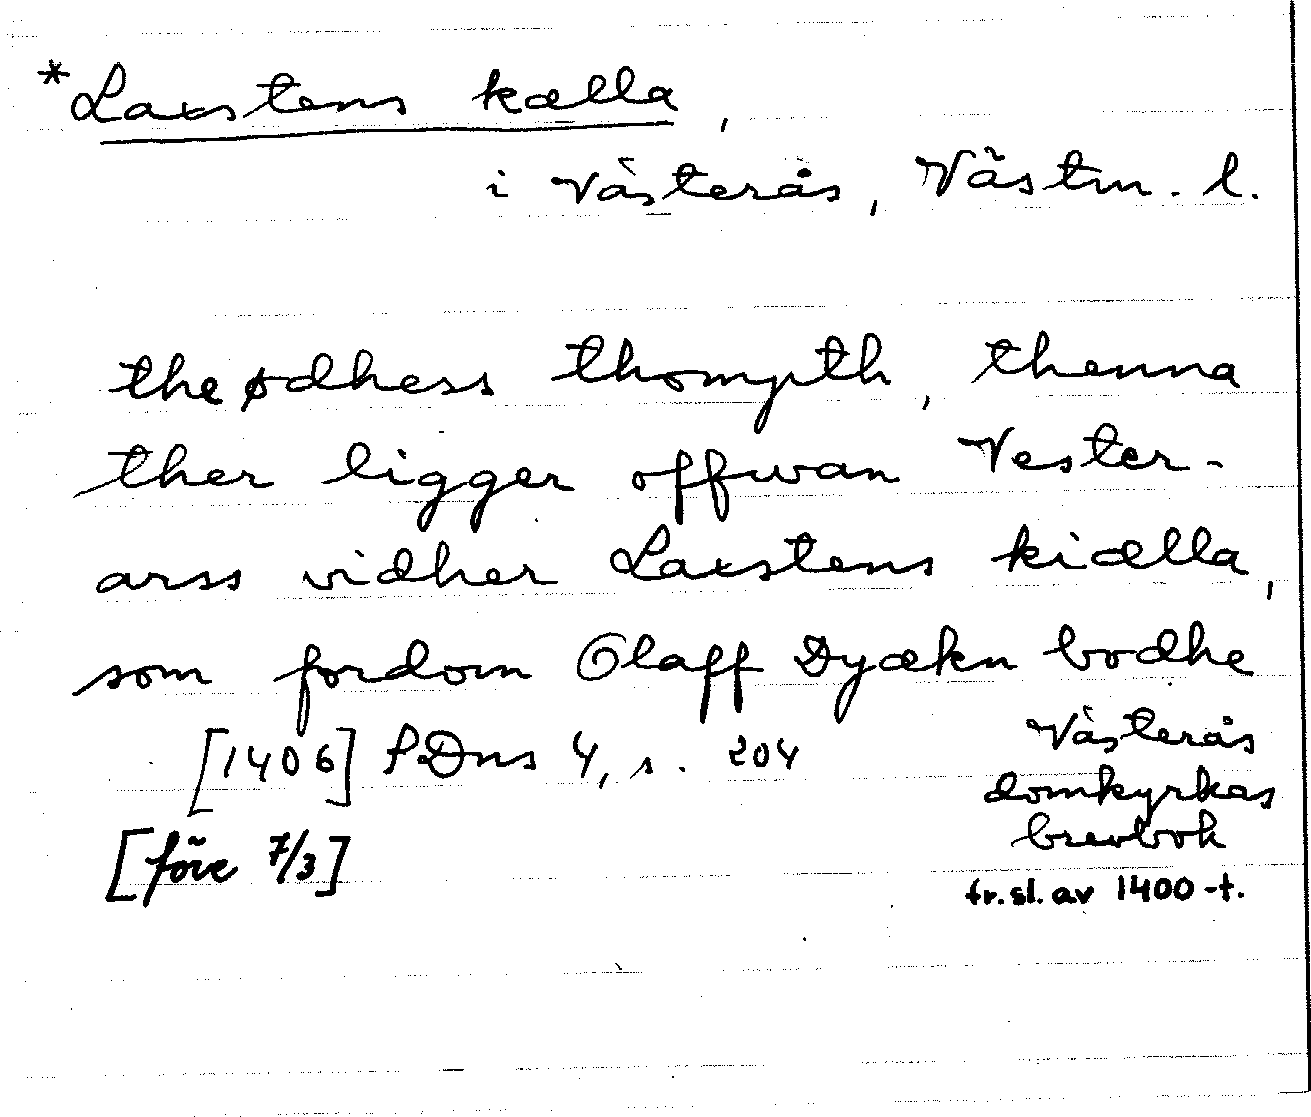 *Laxstens kælla,
i Västerås, Västm. l.
the ødhess thompth, thenna
ther ligger offwan Vester-
arss vidher Laxstens kiælla,
som fordom Olaff Dyækn bodhe
[1406] SDns 4, s. 204
[före 7/3]
Västerås
domkyrkas
brevbok
fr. sl. av 1400-t.